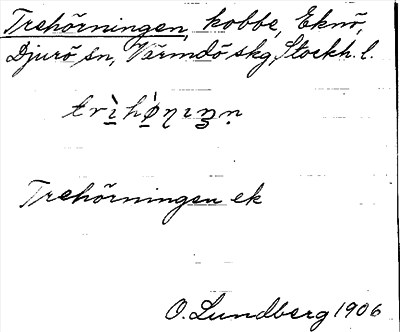 Trehörningen, kobbe, Eknö,
Djurö sn, Värmdö skg, Stockh. l.
Trehörningen ek
O. Lundberg 1906